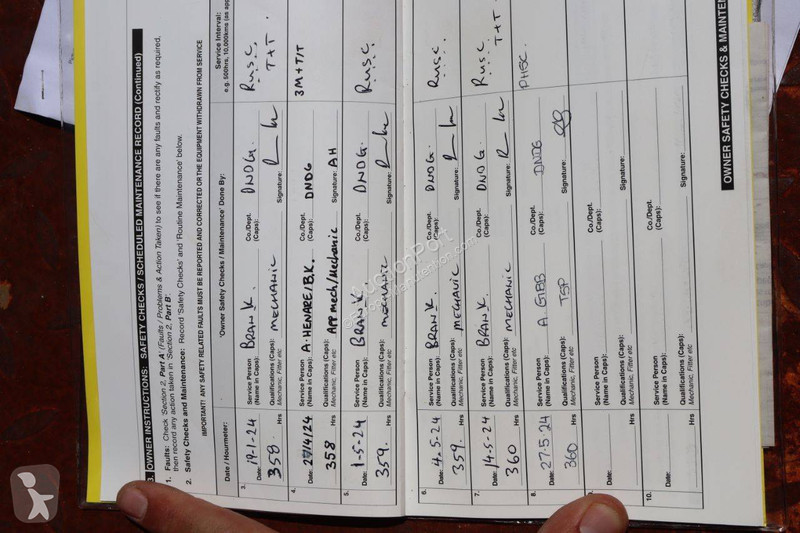 3. OWNER INSTRUCTIONS: SAFETY CHECKS / SCHEDULED MAINTENANCE RECORD (Continued)
1. Faults: Check 'Section 2, Part A' (Faults / Problems & Action Taken) to see if there are any faults and rectify as required,
then record any action taken in 'Section 2, Part B'.
2. Safety Checks and Maintenance: Record 'Safety Checks' and 'Routine Maintenance' below.
IMPORTANT! ANY SAFETY RELATED FAULTS MUST BE REPORTED AND CORRECTED OR THE EQUIPMENT WITHDRAWN FROM SERVICE
Date / Hourmeter: 'Owner Safety Checks / Maintenance' Done By: Service Interval:
e.g. 500hrs, 10,000kms (as app
3. Date: 19-1-24 Service Person (Name in Caps): BRAN K. Co./Dept. (Caps): DNDG. R.W.S.C.
358 Hrs Qualifications (Caps): MECHANIC Mechanic, Fitter etc Signature: T+T.
4. Date: 29/4/24 Service Person (Name in Caps): A.HENARE/B.K. Co./Dept. (Caps): DNDG 3M+T/T
358 Hrs Qualifications (Caps): App mech/Mechanic Mechanic, Fitter etc Signature: AH
5. Date: 1-5-24 Service Person (Name in Caps): BRAN K. Co./Dept. (Caps): DNDG. R.W.S.C.
359. Hrs Qualifications (Caps): MECHANIC Mechanic, Fitter etc Signature:
6. Date: 4.5-24 Service Person (Name in Caps): BRAN K. Co./Dept. (Caps): DNDG. R.W.S.C.
359. Hrs Qualifications (Caps): MECHANIC Mechanic, Fitter etc Signature:
7. Date: 14-5-24 Service Person (Name in Caps): BRAN K. Co./Dept. (Caps): DNDG. R.W.S.C
360 Hrs Qualifications (Caps): MECHANIC Mechanic, Fitter etc Signature: T+T.
8. Date: 27.5.24 Service Person (Name in Caps): A. GIBB Co./Dept. (Caps): DNDG PHSC.
360 Hrs Qualifications (Caps): TSP Mechanic, Fitter etc Signature:
9. Date: Service Person (Name in Caps): Co./Dept. (Caps):
Hrs Qualifications (Caps): Mechanic, Fitter etc Signature:
10. Date: Service Person (Name in Caps): Co./Dept. (Caps):
Hrs Qualifications (Caps): Mechanic, Fitter etc Signature:
OWNER SAFETY CHECKS & MAINTEN